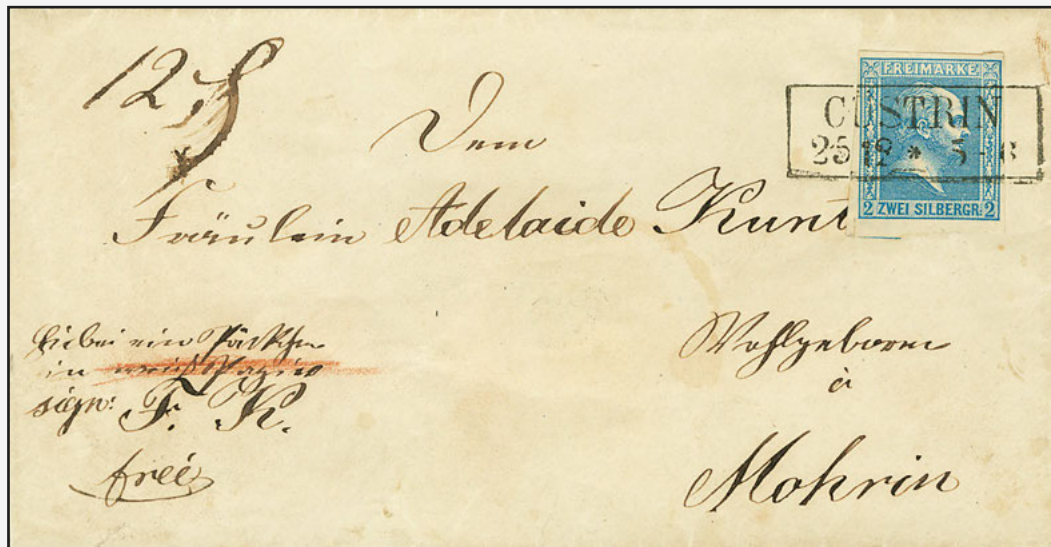 12 ℔
FREIMARKE
CÜSTRIN
25 12 * 5-6
2 ZWEI SILBERGR. 2
Dem
Fräulein Adelaide Kunt
Wohlgeboren
à
Mohrin
hiebei ein Päckchen
in
sign: F. K.
frei